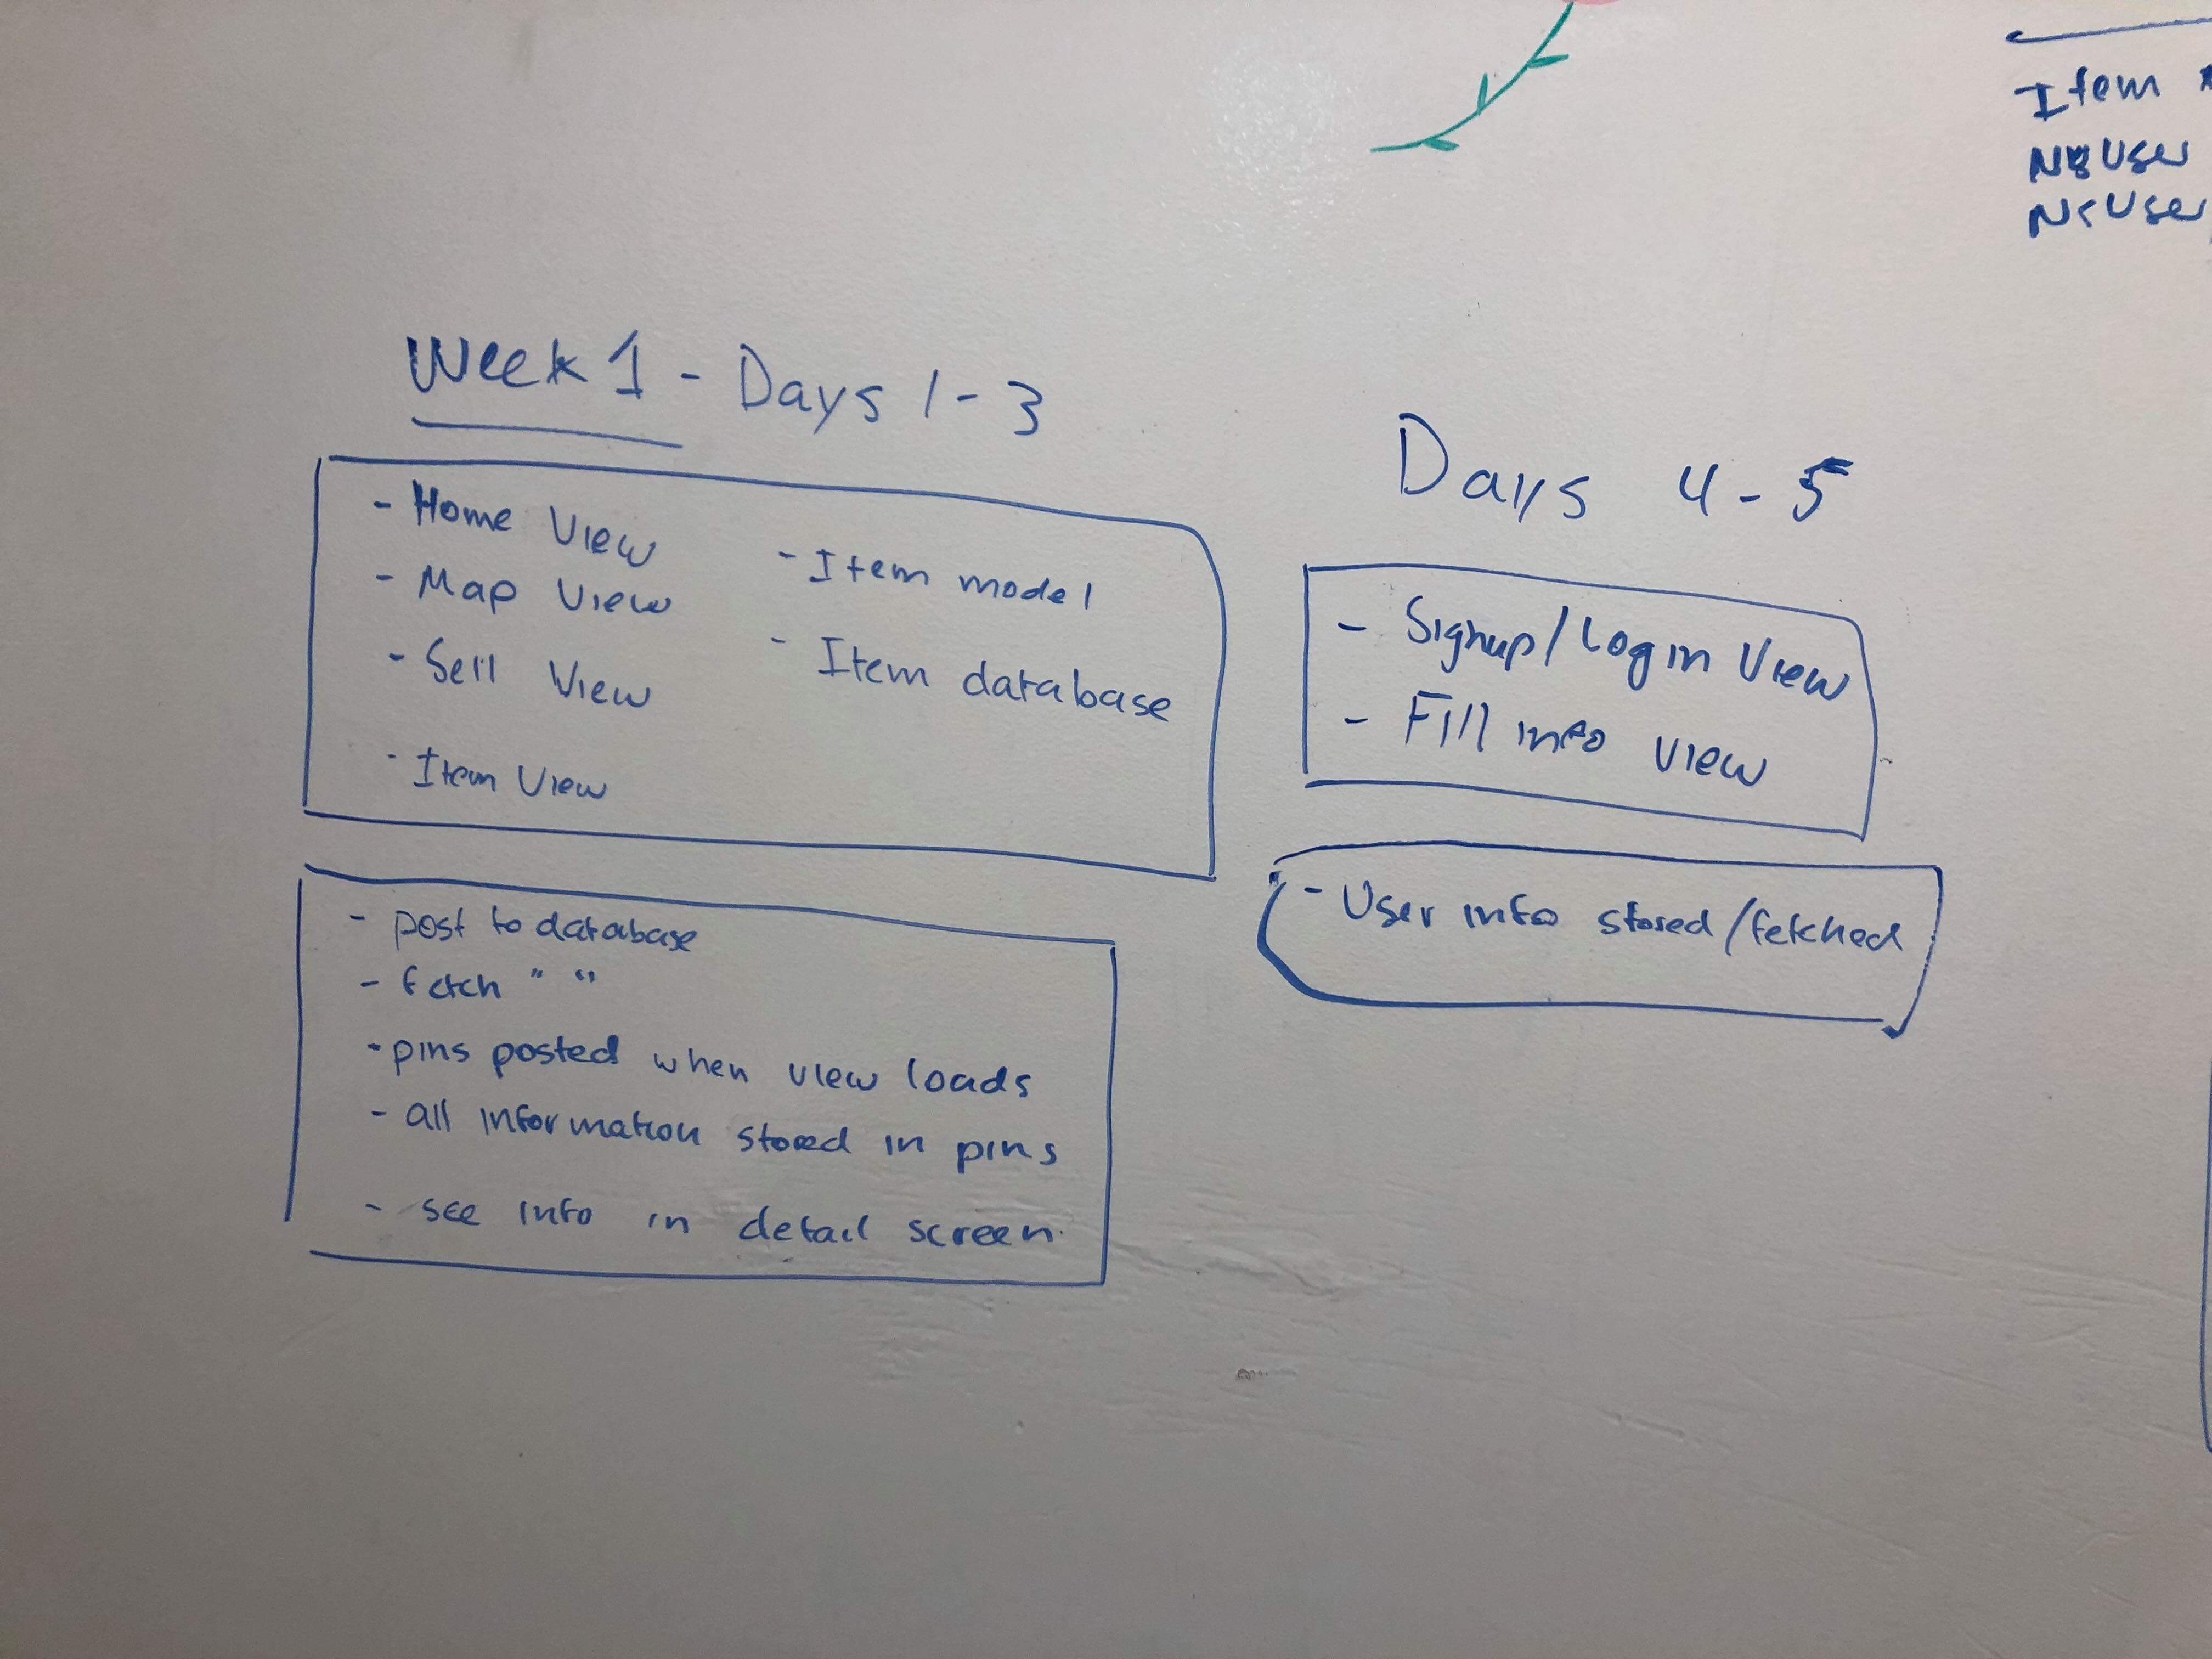 Week 1 - Days 1-3
- Home View
- Map View
- Sell View
- Item View
- Item model
- Item database
- post to database
- fetch " "
- pins posted when view loads
- all information stored in pins
- see info in detail screen
Days 4-5
- Signup/Login View
- Fill info view
- User info stored/fetched
Item
User
User